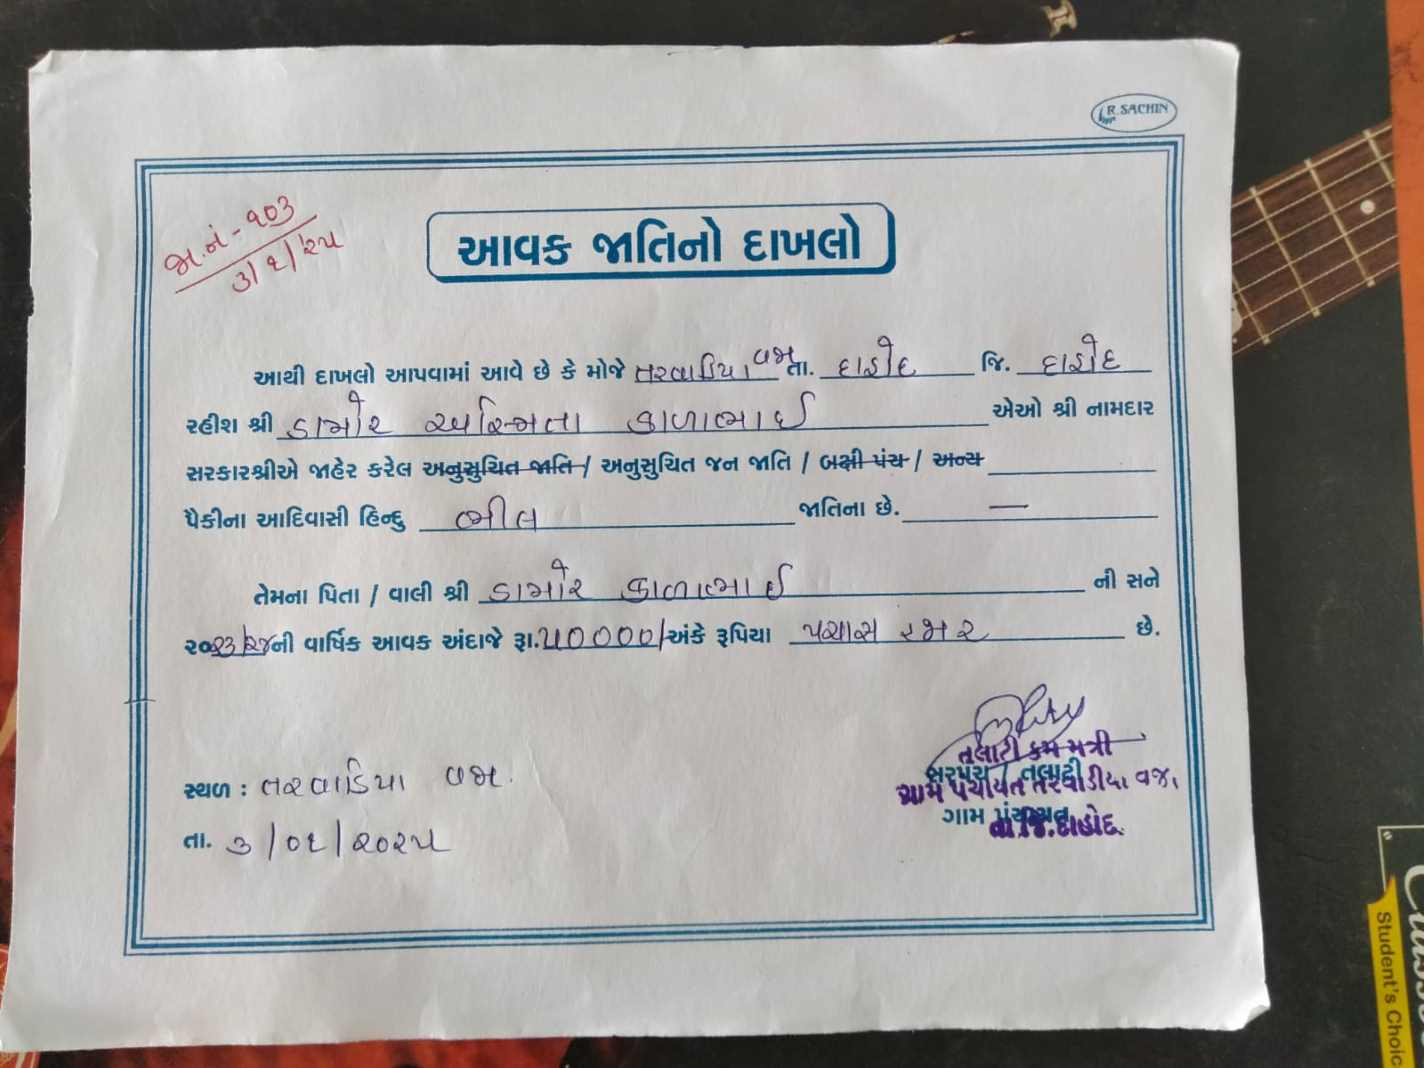 R. SACHIN
જા.નં - ૧૦૩
૩/૬/૨૫
આવક જાતિનો દાખલો
આથી દાખલો આપવામાં આવે છે કે મોજે તરવાડિયા વજા તા. દાહોદ જિ. દાહોદ
રહીશ શ્રી ડામોર અસ્મિતા કાળાભાઈ એઓ શ્રી નામદાર
સરકારશ્રીએ જાહેર કરેલ અનુસુચિત જાતિ / અનુસુચિત જન જાતિ / બક્ષી પંચ / અન્ય
પૈકીના આદિવાસી હિન્દુ ભીલ જાતિના છે. —
તેમના પિતા / વાલી શ્રી ડામોર કાળાભાઈ ની સને
૨૦૨૩/૨૪ની વાર્ષિક આવક અંદાજે રૂા.૫૦૦૦૦/અંકે રૂપિયા પચાસ હજાર છે.
તલાટી કમ મંત્રી
સરપંચ / તલાટી
ગ્રામ પંચાયત તરવાડીયા વજા
ગામ પંચાયત
તા.જિ.દાહોદ.
સ્થળ : તરવાડિયા વજા.
તા. ૩/૦૬/૨૦૨૫
Student's Choic